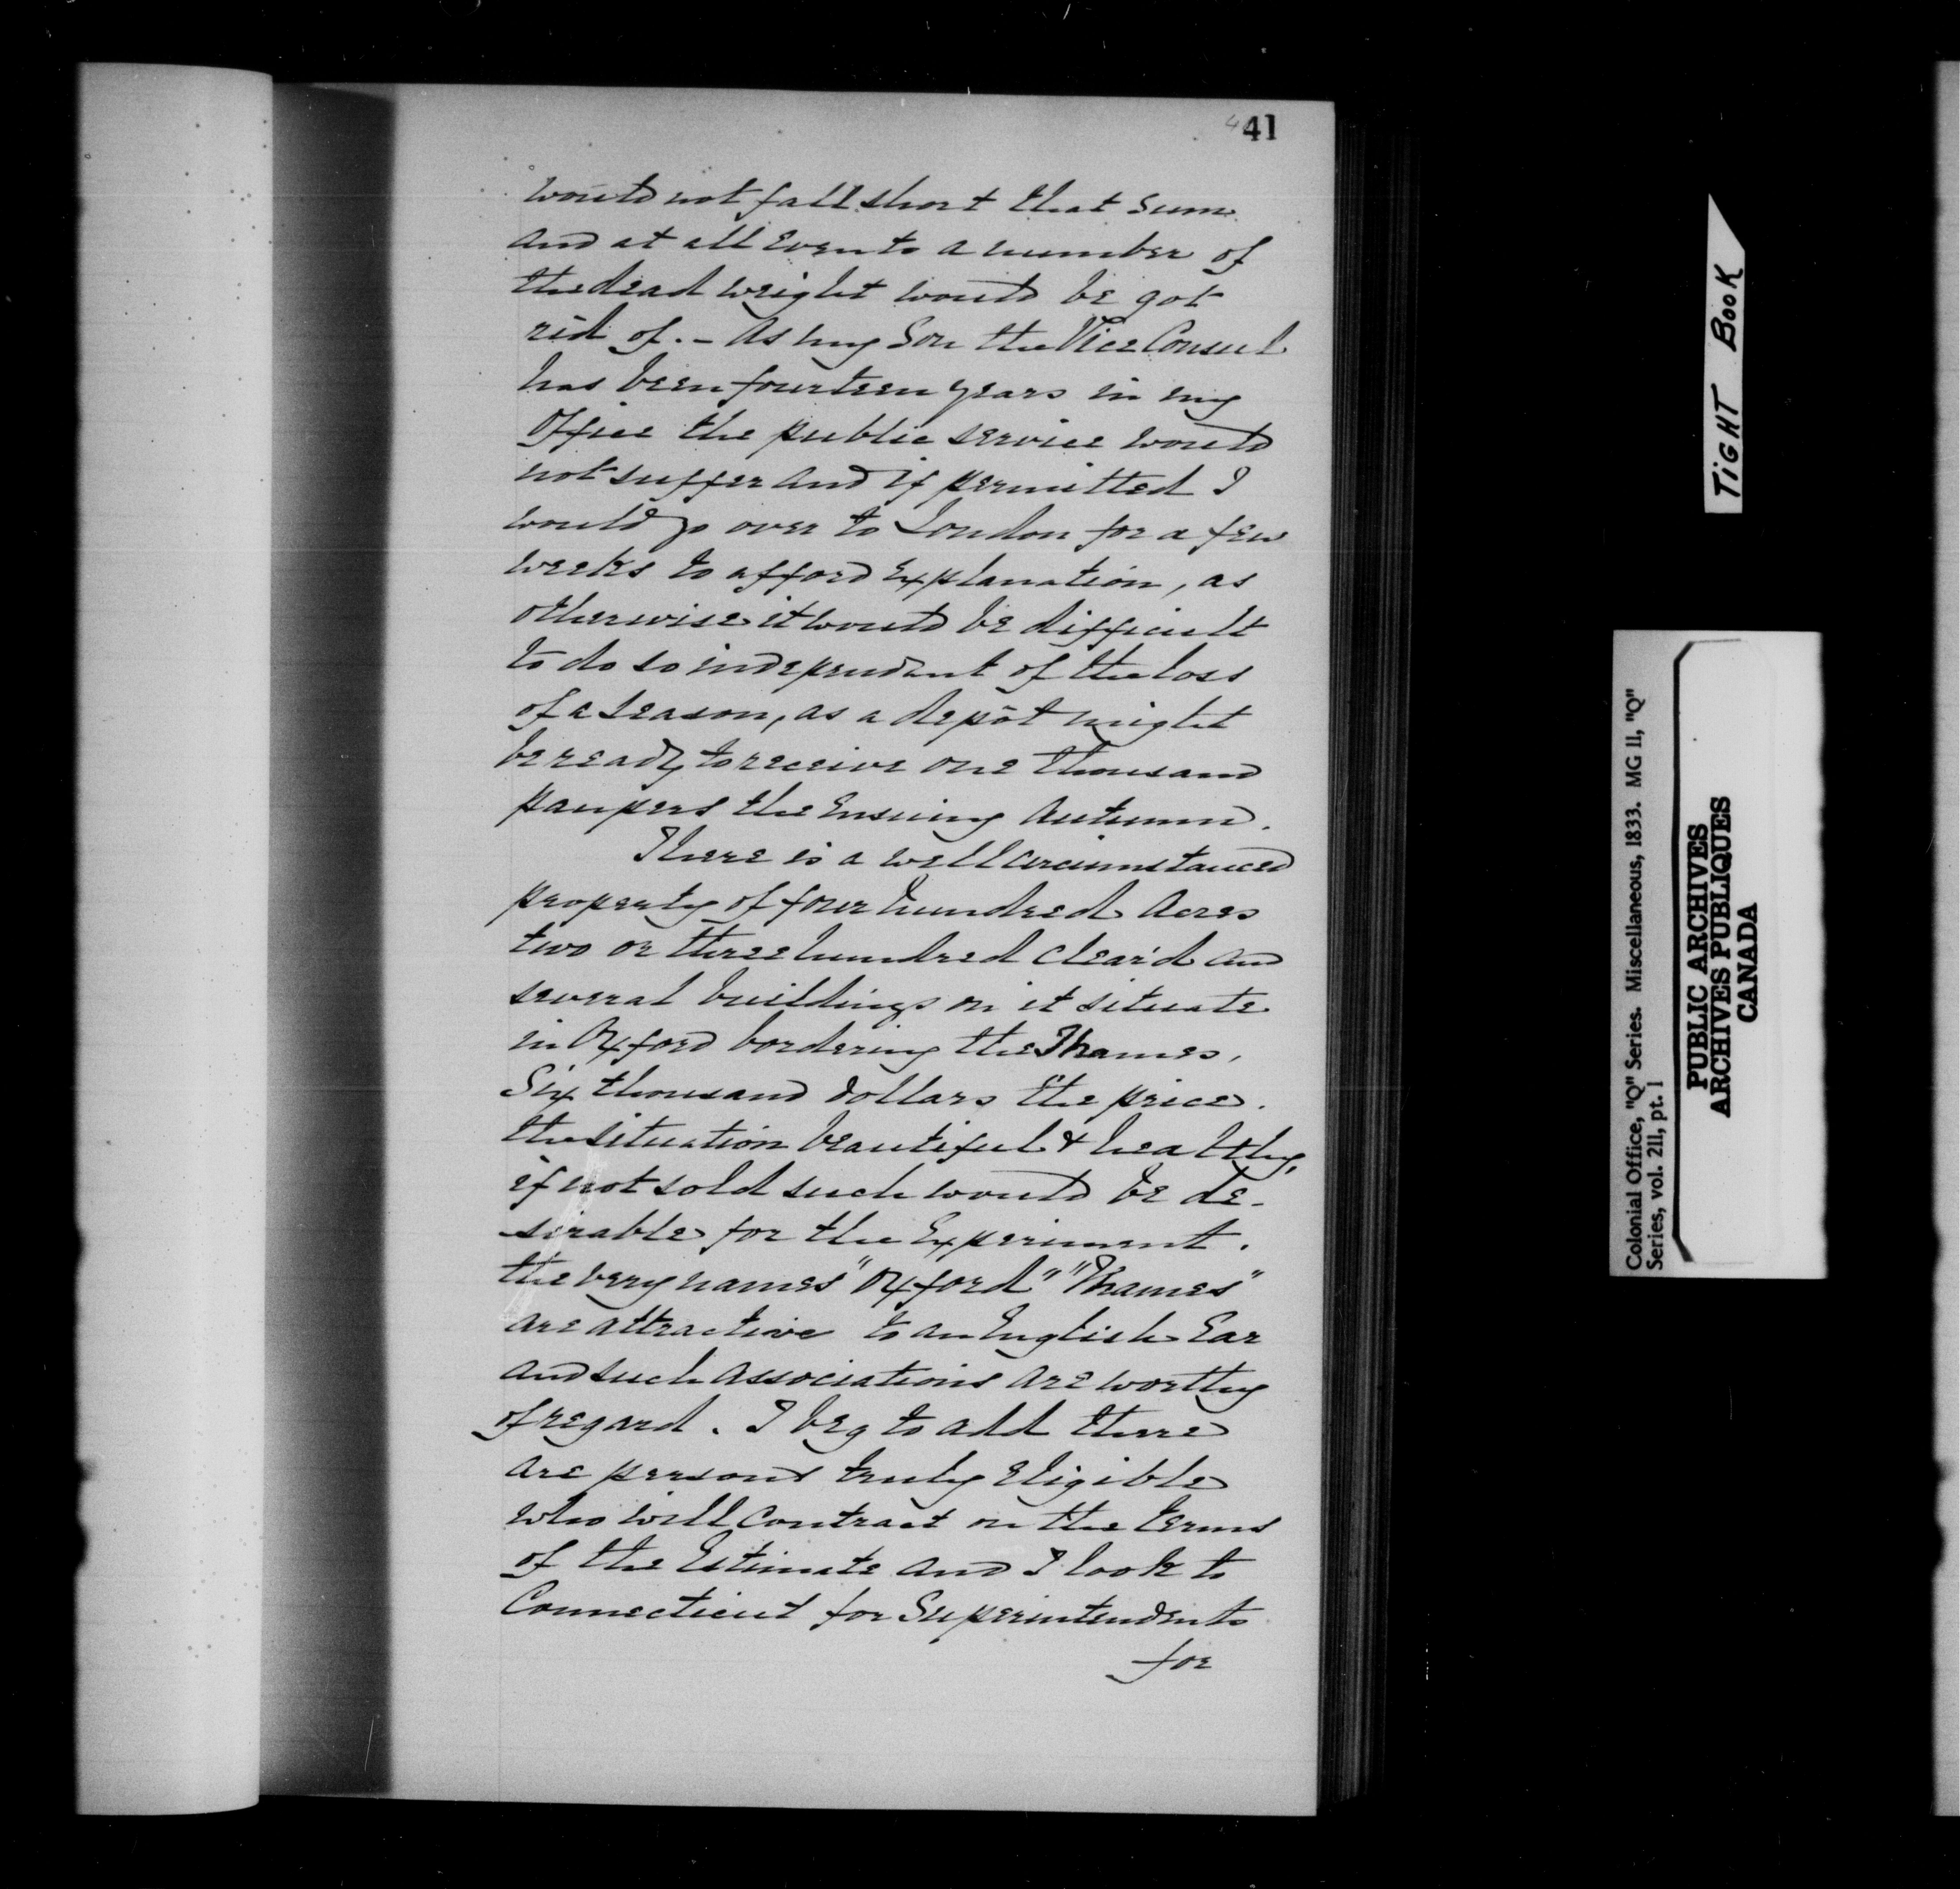 41
would not fall short that sum
and at all events a number of
the dead weight would be got
rid of. - As my Son the Vice Consul
has been fourteen years in my
Office the public service would
not suffer and if permitted I
would go over to London for a few
weeks to afford explanation, as
otherwise it would be difficult
to do so independant of the loss
of a season, as a depôt might
be ready to receive one thousand
paupers the ensuing Autumn.
There is a well circumstanced
property of four hundred Acres
two or three hundred clear'd and
several buildings on it situate
in Oxford bordering the Thames,
Six thousand dollars the price.
the situation beautiful & healthy,
if not sold such would be de-
sirable for the Experiment.
the very names "Oxford" "Thames"
are attractive to an English Ear
and such associations are worthy
of regard. I beg to add there
are persons truly eligible
who will contract on the terms
of the Estimate and I look to
Connecticut for Superintendents
for
TIGHT BOOK
Colonial Office, "Q" Series. Miscellaneous, 1833. MG 11, "Q"
Series, vol. 211, pt. 1
PUBLIC ARCHIVES
ARCHIVES PUBLIQUES
CANADA